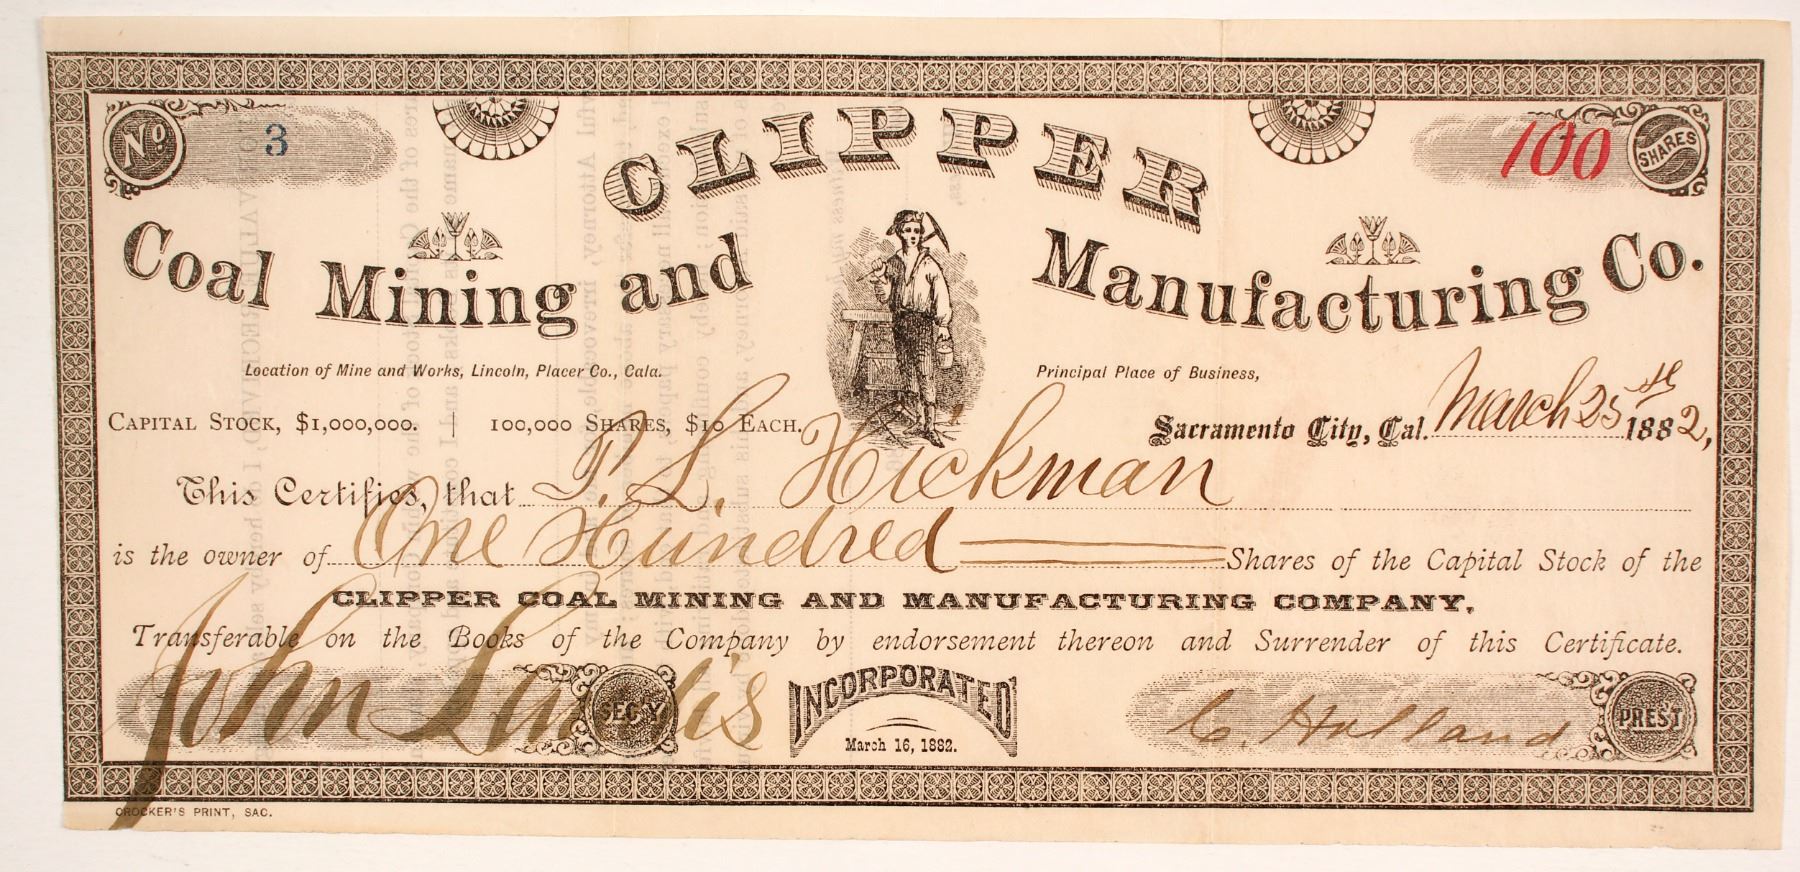 No. 3
100 SHARES
CLIPPER
Coal Mining and Manufacturing Co.
Location of Mine and Works, Lincoln, Placer Co., Cala.
Principal Place of Business,
CAPITAL STOCK, $1,000,000. | 100,000 SHARES, $10 EACH.
Sacramento City, Cal. March 25th 1882,
This Certifies, that L. Hickman
is the owner of One Hundred Shares of the Capital Stock of the
CLIPPER COAL MINING AND MANUFACTURING COMPANY,
Transferable on the Books of the Company by endorsement thereon and Surrender of this Certificate.
John Landis SEC'Y
INCORPORATED
March 16, 1882.
C. Holland PREST
CROCKER'S PRINT, SAC.